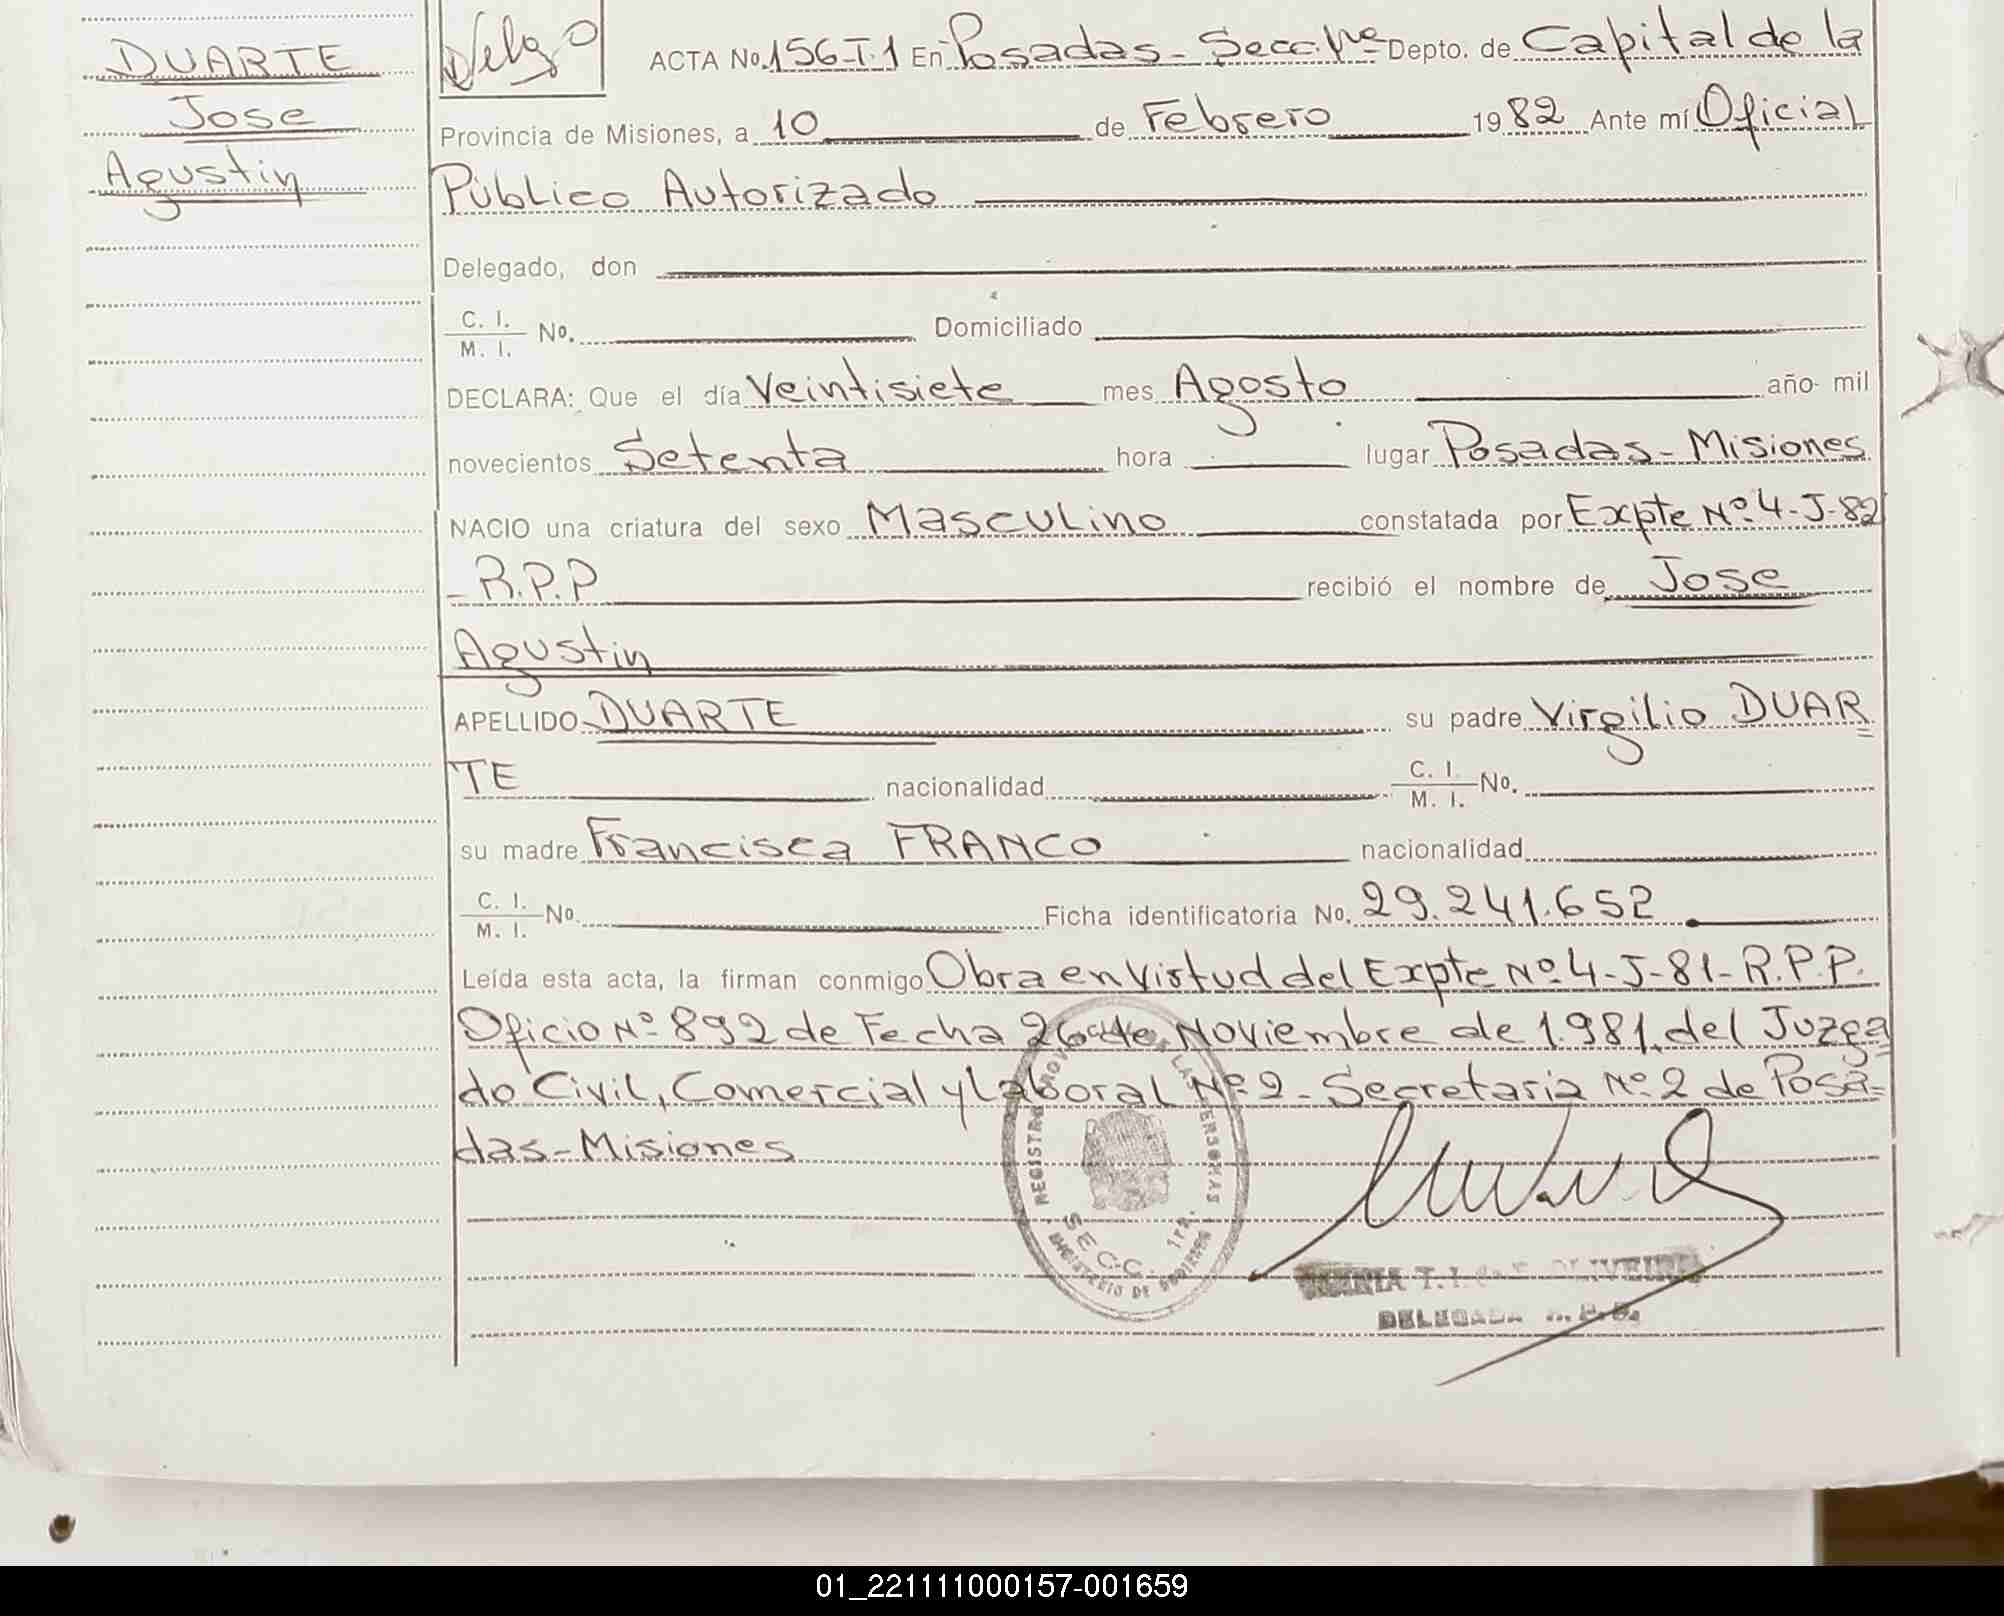 DUARTE
Jose
Agustin
Delg
ACTA No. 156-T.1 En Posadas - Secc. 1ra Depto. de Capital de la
Provincia de Misiones, a 10 de Febrero 1982 Ante mí Oficial
Público Autorizado
Delegado, don
C. I.
M. I. No. Domiciliado
DECLARA: Que el día Veintisiete mes Agosto año mil
novecientos Setenta hora lugar Posadas - Misiones
NACIO una criatura del sexo Masculino constatada por Expte Nº 4-J-82
- R.P.P recibió el nombre de Jose
Agustin
APELLIDO DUARTE su padre Virgilio DUAR
TE nacionalidad C. I.
M. I. No.
su madre Francisca FRANCO nacionalidad
C. I.
M. I. No. Ficha identificatoria No. 29.241.652
Leída esta acta, la firman conmigo Obra en Virtud del Expte Nº 4-J-81-R.P.P.
Oficio Nº 892 de Fecha 26 de Noviembre de 1.981, del Juzga
do Civil, Comercial y Laboral Nº 2 - Secretaria Nº 2 de Posa=
das - Misiones
REGISTRO LAS PERSONAS
SECC. 1ra.
MINISTERIO DE GOBIERNO
T. I. OLIVEIRA
DELEGADA R.P.P.
01_221111000157-001659